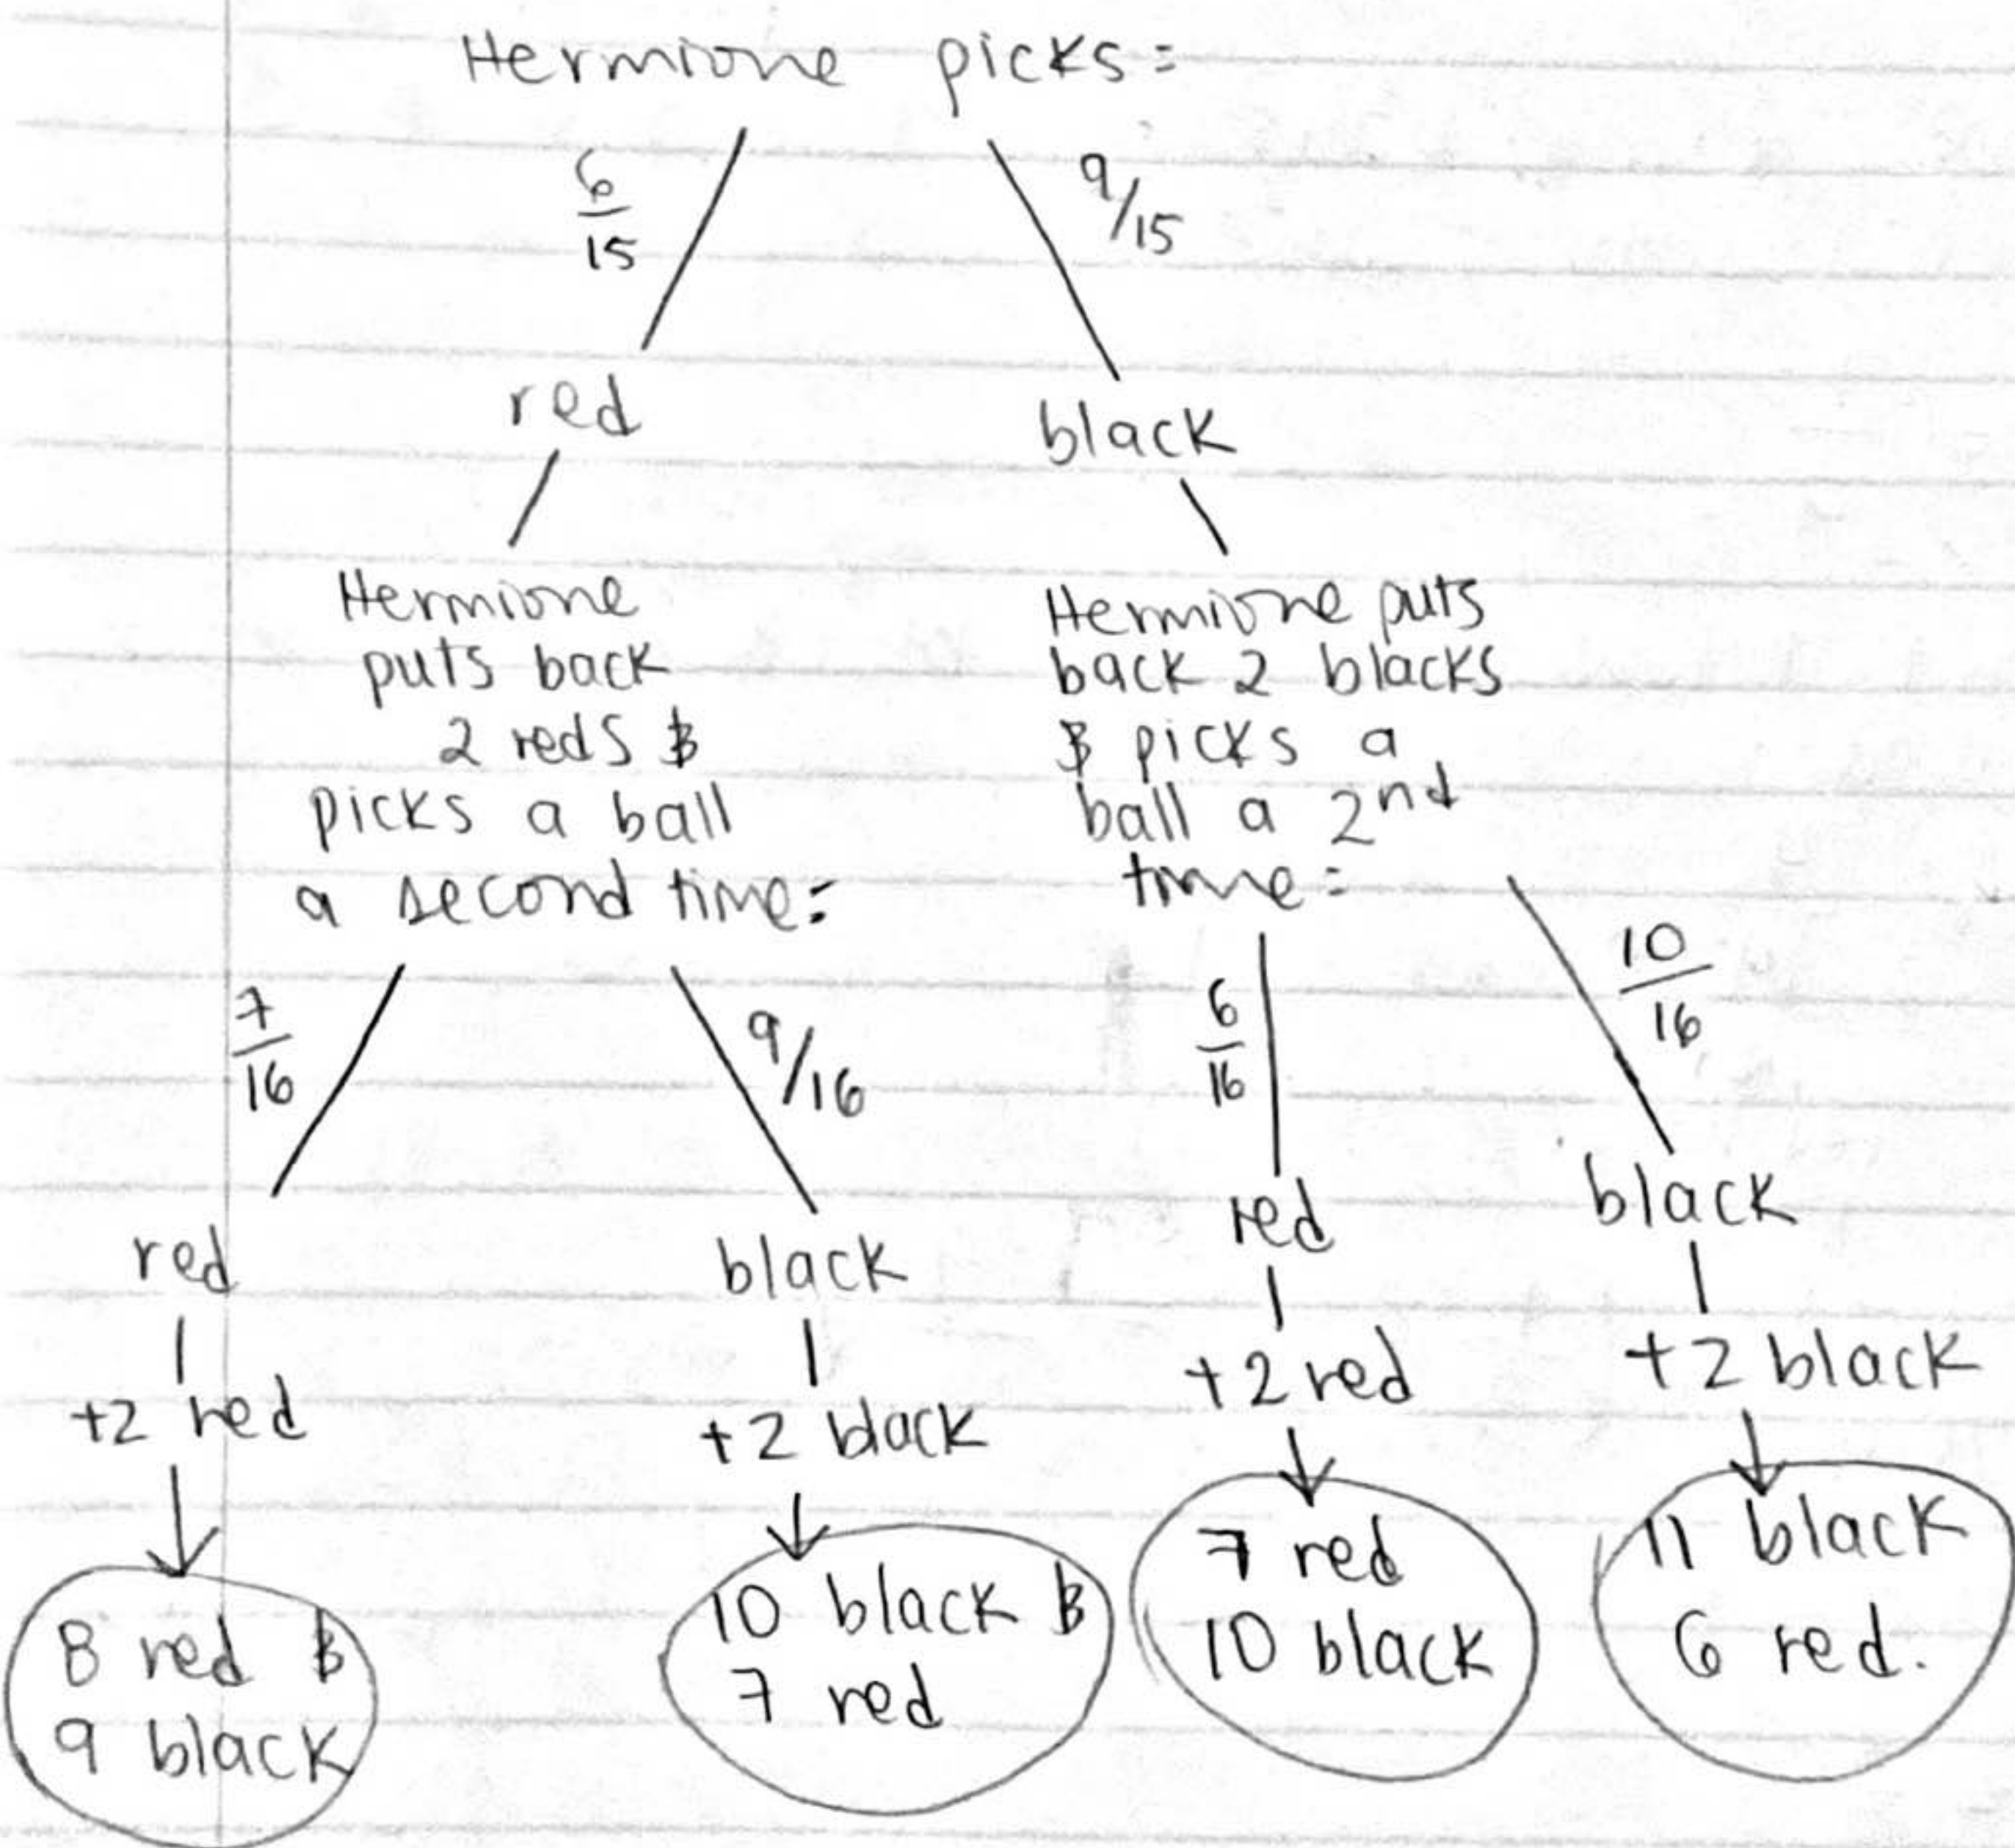 Hermione picks:
6/15
9/15
red
black
Hermione
puts back
2 reds &
picks a ball
a second time:
Hermione puts
back 2 blacks
& picks a
ball a 2nd
time:
7/16
9/16
6/16
10/16
red
black
red
black
+2 red
+2 black
+2 red
+2 black
8 red &
9 black
10 black &
7 red
7 red
10 black
11 black
6 red.